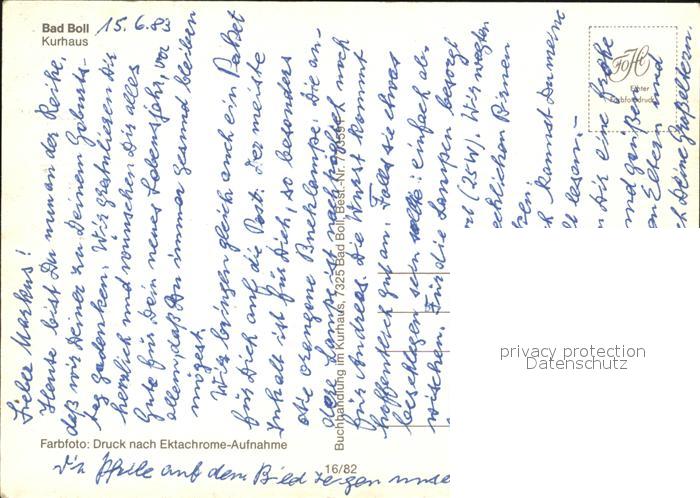 Bad Boll
Kurhaus
15.6.83
Lieber Markus!
Heute bist Du nun an der Reihe,
daß wir Deiner zu Deinem Geburts-
tag gedenken. Wir gratulieren Dir
herzlich und wünschen Dir alles
Gute für Dein neues Lebensjahr, vor
allem, daß Du immer gesund bleiben
mögest.
Wir bringen gleich auch ein Paket
für Dich auf die Post. Der meiste
Inhalt ist für Dich, so besonders
die orangene Buchlampe. Die an-
dere Lampe ist nachträglich noch
für Andreas. Die Wurst kommt
hoffentlich gut an. Falls sie etwas
beschlagen sein sollte: einfach ab-
wischen. Für die Lampen besorgt
(25W). Wir mögten
echlichen Birnen
kannst Du meine
lesen.-
Dir eine große
und grüßen
Eltern und
Deine Großeltern.
Die Pfeile auf dem Bild zeigen unse
Buchhandlung im Kurhaus, 7325 Bad Boll, Best.-Nr.
Farbfoto: Druck nach Ektachrome-Aufnahme
16/82
Echter
Farbfotodruck
privacy protection
Datenschutz